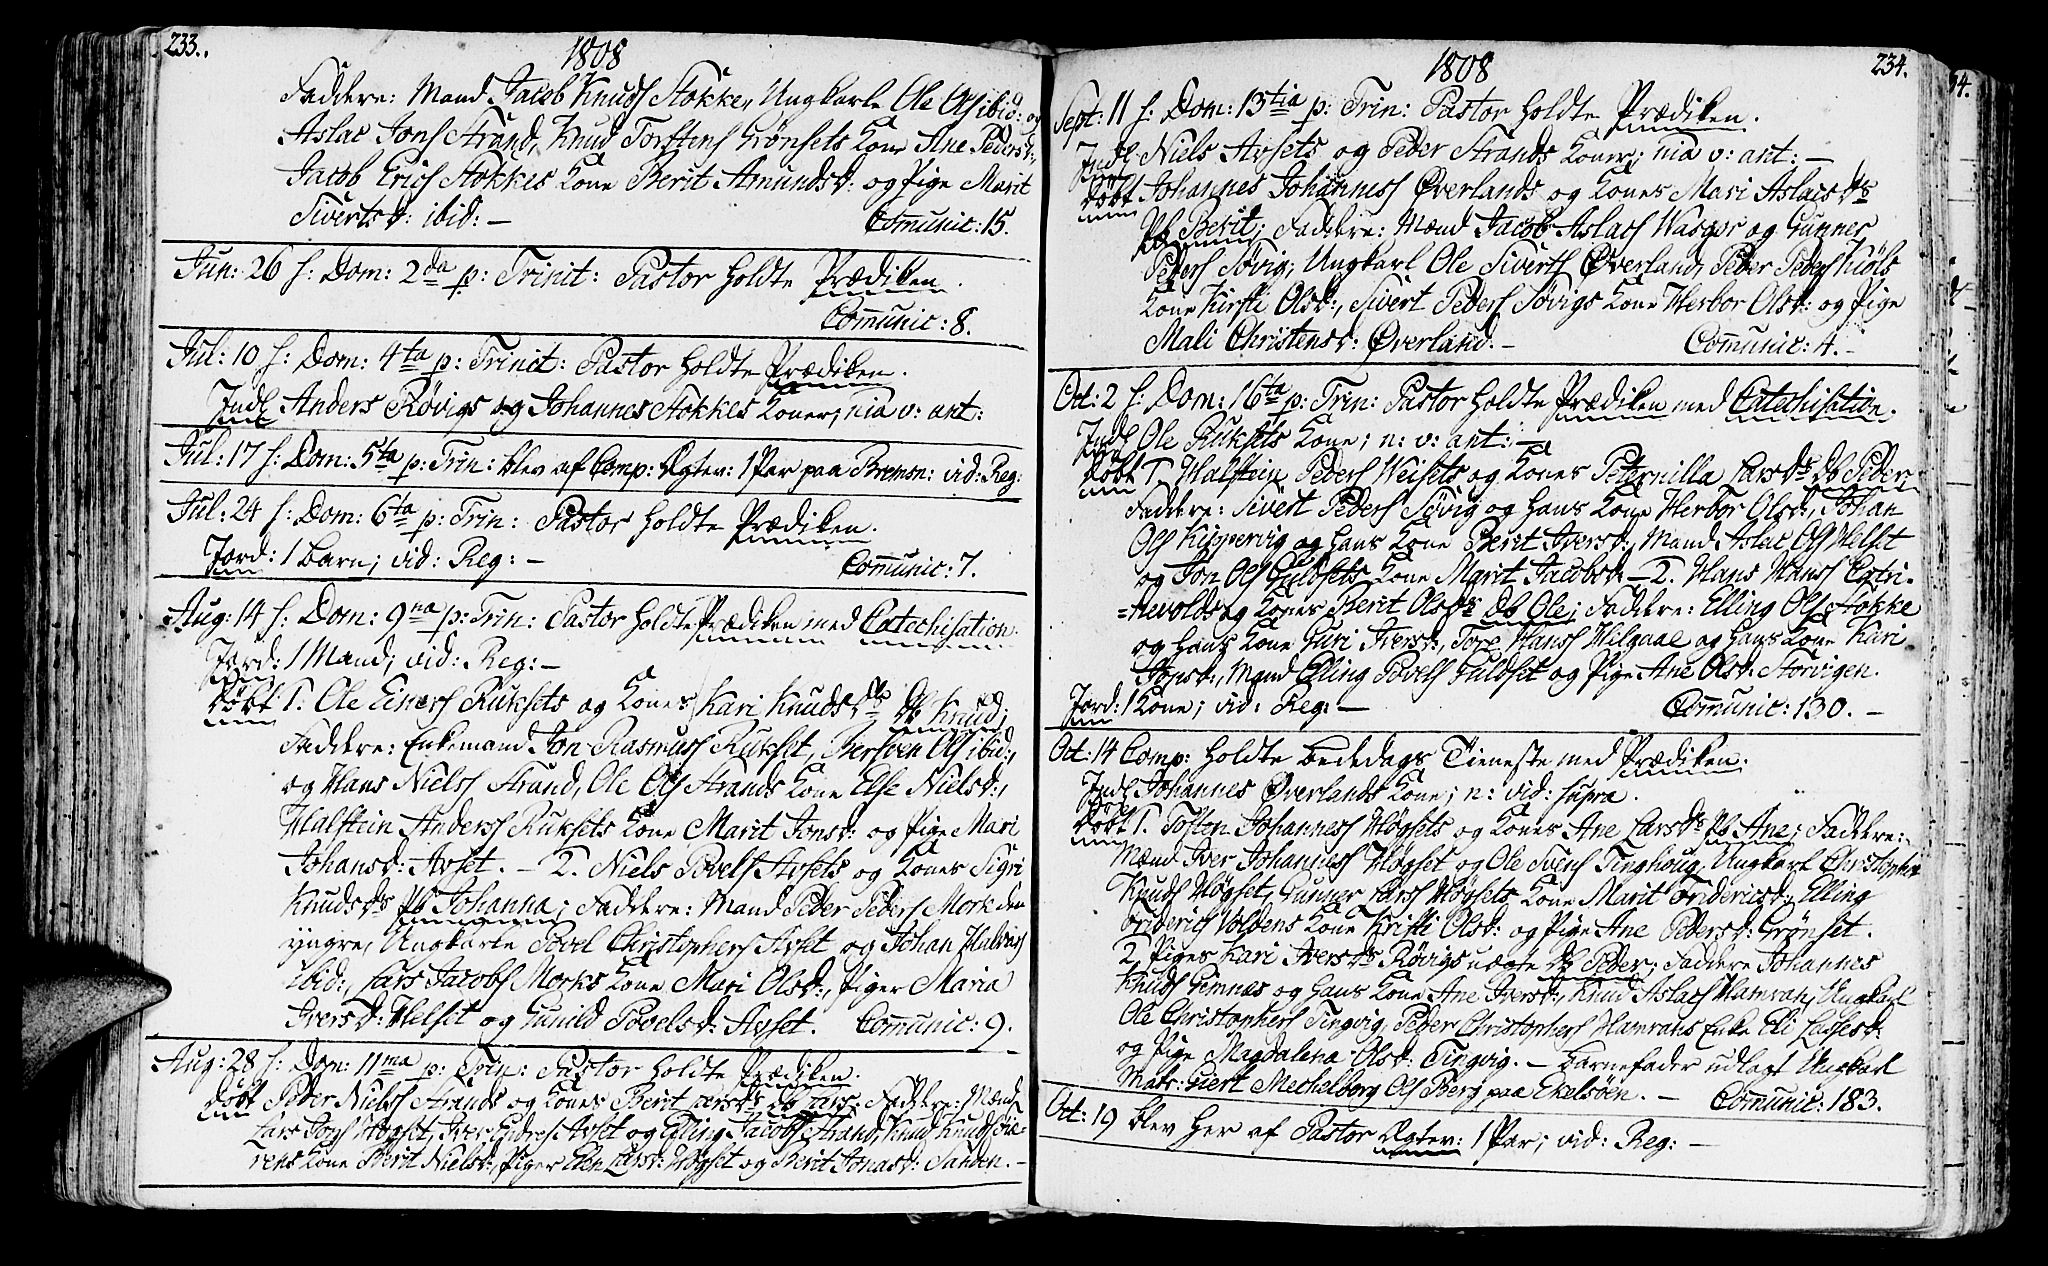 233.
1808
Faddere: Mand Jacob Knuds Stokke, Ungkarle Ole Ols ibid: og
Aslac Jons Strand, Knud Torstens Grönsets Kone Ane Pedersd:,
Jacob Erics Stokkes Kone Berit Amundsd: og Pige Marit
Sivertsd: ibid: —
Comunic: 15.
Jun: 26 h: Dom: 2da p: Trinit: Pastor holdte Prædiken.
Comunic: 8.
Jul: 10 h: Dom: 4ta p: Trinit: Pastor holdte Prædiken.
Indl Anders Røvigs og Johannes Stokkes Koner; nia v: ant:
Jul: 17 h: Dom: 5ta p: Trin: blev af Comp: Ægtev: 1 Par paa Bremsn: vid: Reg:
Jul: 24 h: Dom: 6ta p: Trin: Pastor holdte Prædiken.
Jord: 1 Barn; vid: Reg: —
Comunic: 7.
Aug: 14 h: Dom: 9na p: Trin: Pastor holdte Prædiken med Catechisation.
Jord: 1 Mand; vid: Reg: —
Döbt 1. Ole Einers Ruksets og Kones Kari Knudsds Db Knud;
Faddere: Enkemand Jon Rasmuss Rukset, Bersven Ols ibid:,
og Hans Niels Strand, Ole Ols Strands Kone Else Nielsd:,
Halstein Anderss Ruksets Kone Marit Jonsd: og Pige Mari
Johansd: Avset. — 2. Niels Povels Avsets og Kones Sigri
Knudsds Pb Johanna; Faddere: Mand Peder Peders Mork den
yngre, Ungkarle Povel Christophers Avset og Johan Halvors
ibid:, Lars Jacobs Morks Kone Mari Olsd:, Piger Maria
Iversd: Helset og Gunild Povelsd: Avset. Comunic: 9.
Aug: 28 h: Dom: 11ma p: Trin: Pastor holdte Prædiken.
Döbt Peder Niels Strands og Kones Berit Larsds Db Lars. Faddere: Mænd
Lars Jons Högset, Iver Endres Avset og Elling Jacobs Strand, Knud Knuds
rens Kone Berit Nielsd:, Piger Elen Larsd: Högset og Berit Jonasd: Sanden. —
234.
1808
Sept: 11 h: Dom: 13tia p: Trin: Pastor holdte Prædiken.
Indl Niels Avsets og Peder Strands Koner; nia v: ant: —
Döbt Johannes Johanness Øverlands og Kones Mari Aslacsds
Pb Berit; Faddere: Mænd Jacob Aslacs Wasgor og Gunner
Peders Søvig; Ungkarl Ole Siverts Øverland, Peder Peders Kiöls
Kone Kirsti Olsd:, Sivert Peders Søvigs Kone Herbor Olsd: og Pige
Mali Christensd: Øverland. —
Comunic: 4. —
Oct: 2 h: Dom: 16ta p: Trin: Pastor holdte Prædiken med Catechisation.
Indl Ole Ruksets Kone; n: v: ant: —
Döbt 1. Halstein Peders Weisets og Kones Peternilla Larsds Db Peder;
Faddere: Sivert Peders Søvig og hans Kone Herbor Olsd:, Johan
Ols Kippervig og hans Kone Berit Iversd:, Mand Aslac Ols Helset
og Jon Ols Guldsets Kone Marit Jacobsd: — 2. Hans Hans Catri-
=hevolds og Kones Berit Olsds Db Ole; Faddere: Elling Ols Stokke
og hans Kone Guri Iversd:, Tore Hans Helgaae og hans Kone Kari
Jonsd:, Mand Elling Povels Fuldset og Pige Ane Olsd: Storvigen.
Jord: 1 Kone; vid: Reg: —
Comunic: 130. —
Oct: 14 Comp: holdte Bededags Tieneste med Prædiken.
Indl Johannes Øverlands Kone; n: vid: supra.
Döbt 1. Tosten Johanness Högsets og Kones Ane Larsds Pb Ane; Faddere:
Mænd Iver Johanness Högset og Ole Svens Tinghoug, Ungkarl Christopher
Knuds Högset, Gunner Larss Högsets Kone Marit Fridericsd:, Elling
Friderics Voldens Kone Kristi Olsd: og Pige Ane Pedersd: Grönset.
2. Piges Kari Iversds Røvigs uægte Db Peder; Faddere Johannes
Knuds Gimnæs og hans Kone Ane Iversd:, Knud Aslacs Hamran, Ungkarl
Ole Christophers Tingvig, Peder Christophers Hamrans Enke Eli Lassesd:
og Pige Magdalena Olsd: Tingvig. — Barnefader udlagt Ungkarl
Mats: Giert Mechelborg Ols Berg paa Ekelsöen. — Comunic: 183.
Oct: 19 blev her af Pastor Ægtev: 1 Par; vid: Reg: —